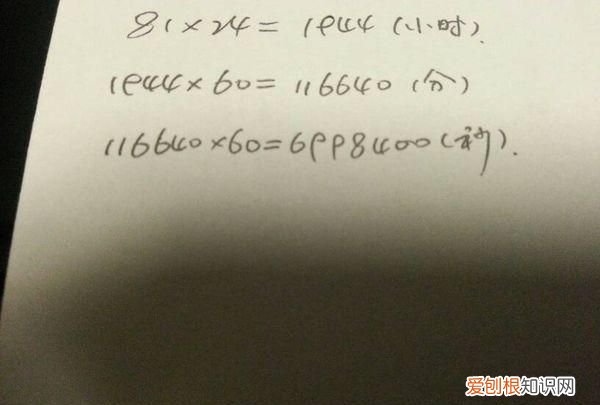 81×24=1944(小时).
1944×60=116640(分)
116640×60=6998400(秒).
爱刨根知识网